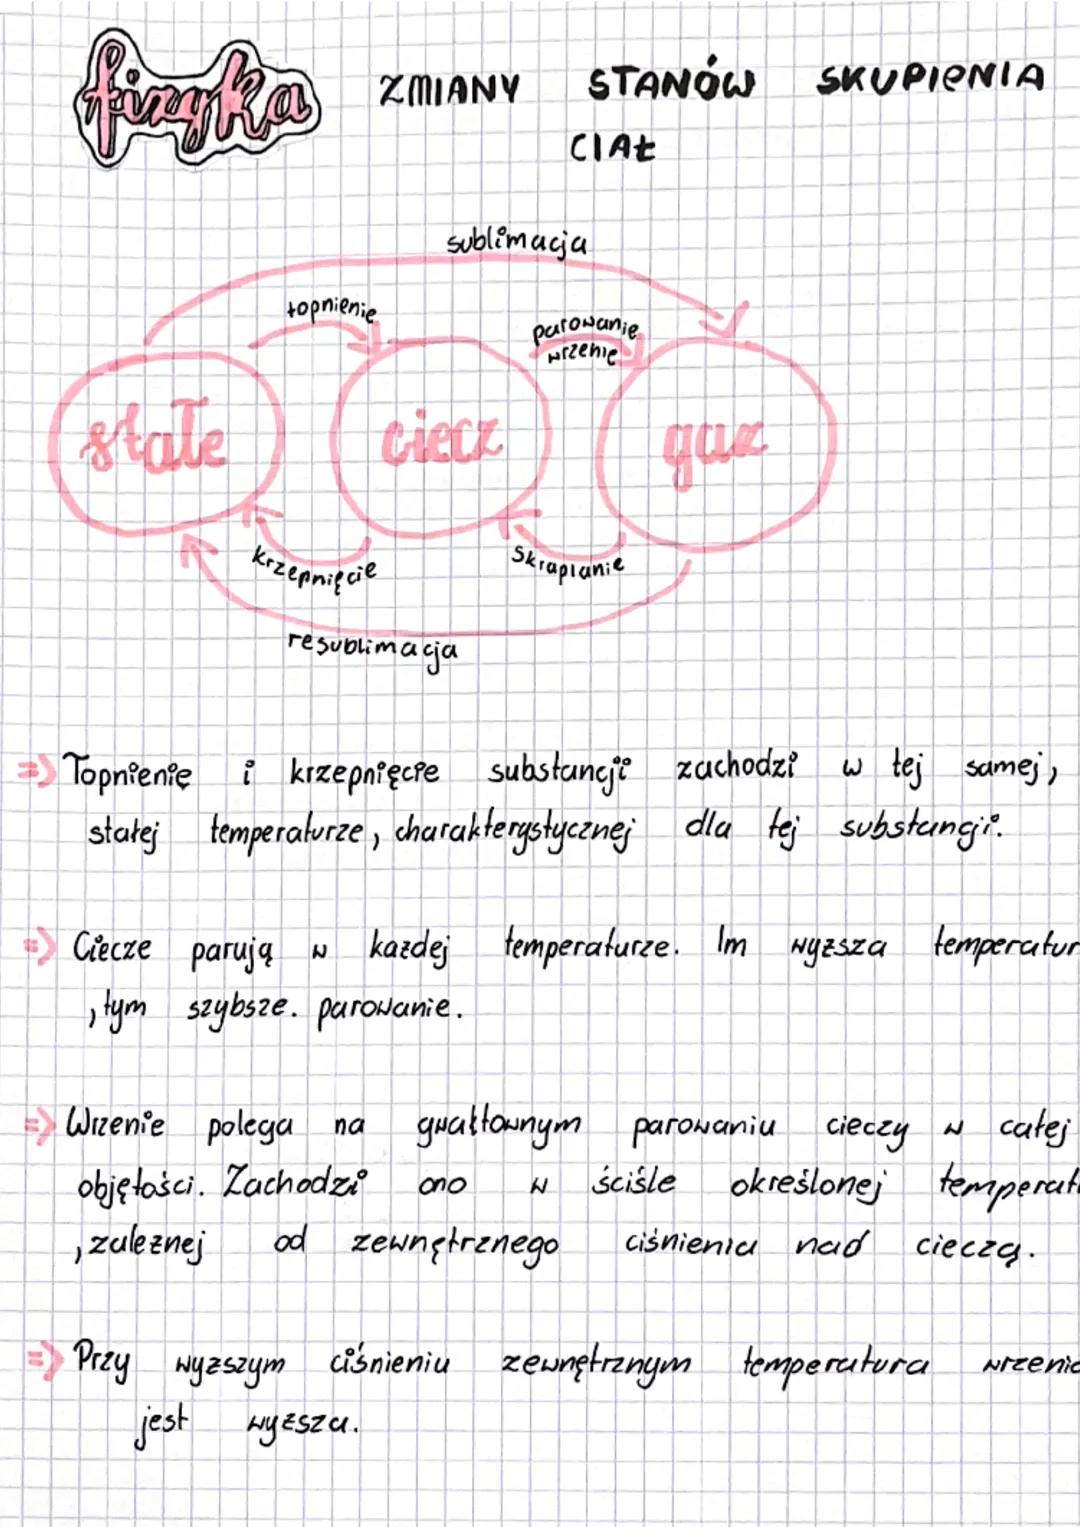 fizyka ZMIANY STANÓW SKUPIENIA
CIAŁ
sublimacja
topnienie
parowanie
wrzenie
stałe ciecz gaz
krzepnięcie
skraplanie
resublimacja
=> Topnienie i krzepnięcie substancji zachodzi w tej samej,
stałej temperaturze, charakterystycznej dla tej substancji.
=> Ciecze parują w każdej temperaturze. Im wyższa temperatur
, tym szybsze. parowanie.
=> Wrzenie polega na gwałtownym parowaniu cieczy w całej
objętości. Zachodzi ono w ściśle określonej temperatu
, zależnej od zewnętrznego ciśnienia nad cieczą.
=> Przy wyższym ciśnieniu zewnętrznym temperatura wrzenia
jest wyższa.